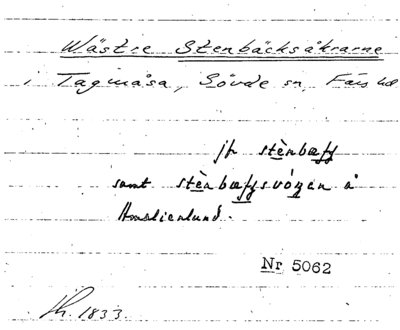 Wästre Stenbäcksåkrarne
i Tagmåsa, Sövde sn, Färs hd
jfr stènbæƒƒ
samt stènbæƒƒsvóŋen å
Amalienlund.
Nr 5062
1833.